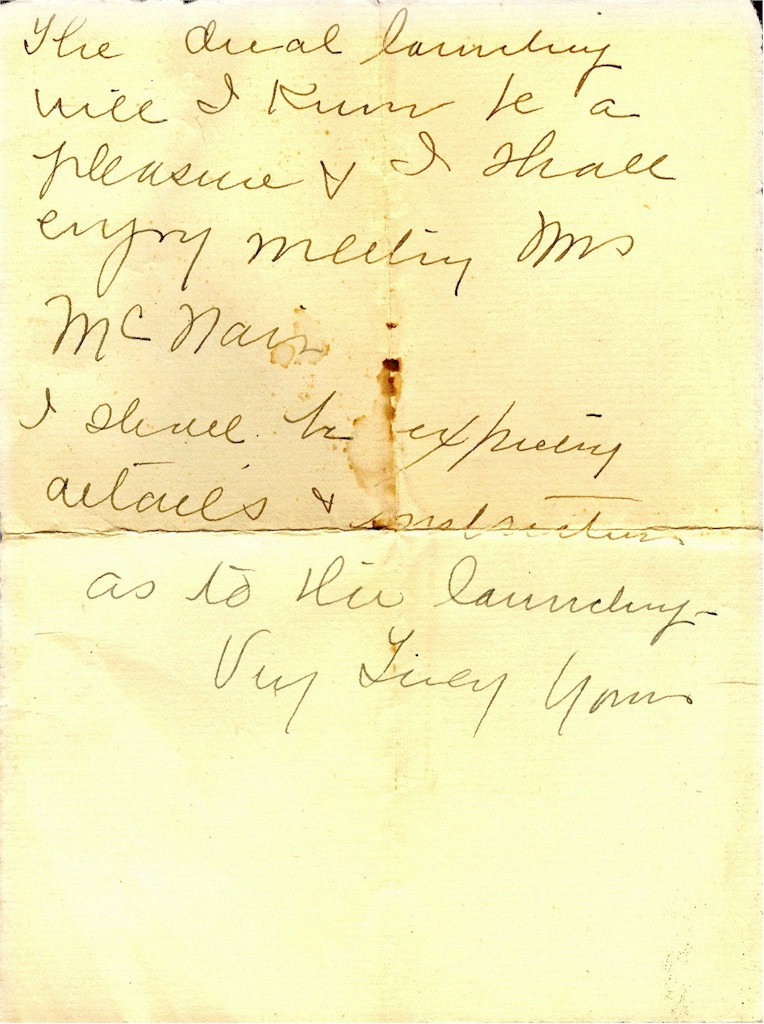 The dual launching
will I know be a
pleasure & I shall
enjoy meeting Mrs
McNair
I shall be expecting
details & instructions
as to the launching-
Very Truly Yours